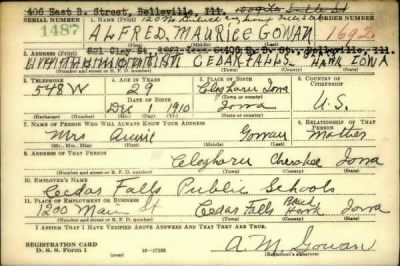 406 East B. Street, Belleville, Ill.
SERIAL NUMBER 1. NAME (Print) ORDER NUMBER
1487 ALFRED MAURICE GOWAN 1692
3. ADDRESS (Print)
CEDAR FALLS HAWK IOWA
5. TELEPHONE 4. AGE IN YEARS 5. PLACE OF BIRTH 6. COUNTRY OF CITIZENSHIP
548 W 29
DATE OF BIRTH
DEC 1 1910 Iowa U.S.
7. NAME OF PERSON WHO WILL ALWAYS KNOW YOUR ADDRESS
Mrs Annie Gowan Mother
(Mr., Mrs., Miss) (First) (Middle) (Last)
8. ADDRESS OF THAT PERSON
Cherokee Iowa
(Number and street or R. F. D. number) (Town) (County) (State)
10. EMPLOYER'S NAME
Cedar Falls Public Schools
11. PLACE OF EMPLOYMENT OR BUSINESS
1200 Main St Cedar Falls Black Hawk Iowa
(Number and street or R. F. D. number) (Town) (County) (State)
I AFFIRM THAT I HAVE VERIFIED ABOVE ANSWERS AND THAT THEY ARE TRUE.
REGISTRATION CARD
D. S. S. Form 1 A. M. Gowan
(Registrant's signature)